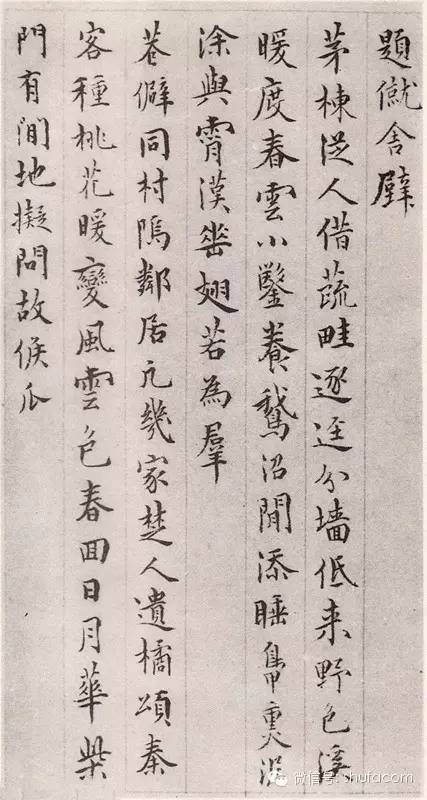 題僦舍壁
茅棟従人借蔬畦逐逕分墙低来野色溪
暖度春雲小鑿養鵞沼閒添睡鴨熏泥
涂與霄漢垂翅若為羣
巷僻同村隖鄰居凢幾家楚人遺橘頌秦
客種桃花暖變風雲色春囬日月華柴
門有閒地擬問故侯瓜
微信号: shufacom